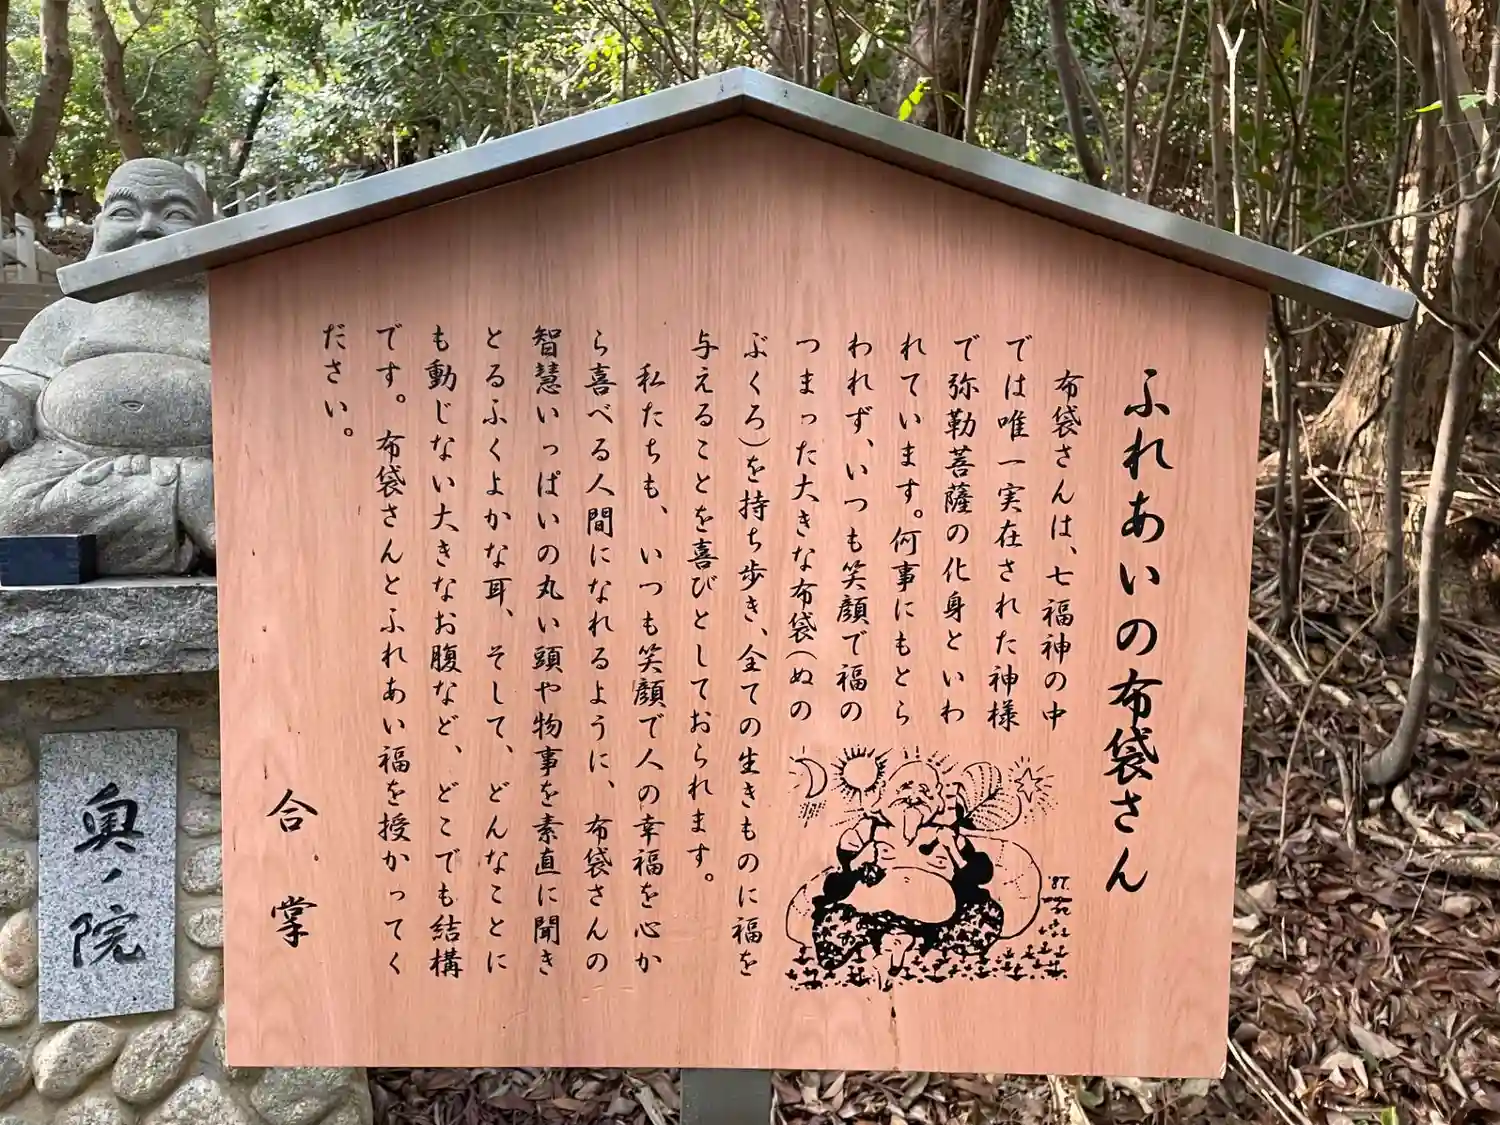 ふれあいの布袋さん
布袋さんは、七福神の中
では唯一実在された神様
で弥勒菩薩の化身といわ
れています。何事にもとら
われず、いつも笑顔で福の
つまった大きな布袋(ぬの
ぶくろ)を持ち歩き、全ての生きものに福を
与えることを喜びとしておられます。
私たちも、いつも笑顔で人の幸福を心か
ら喜べる人間になれるように、布袋さんの
智慧いっぱいの丸い頭や物事を素直に聞き
とるふくよかな耳、そして、どんなことに
も動じない大きなお腹など、どこでも結構
です。布袋さんとふれあい福を授かってく
ださい。
合掌
'87.
奥ノ院